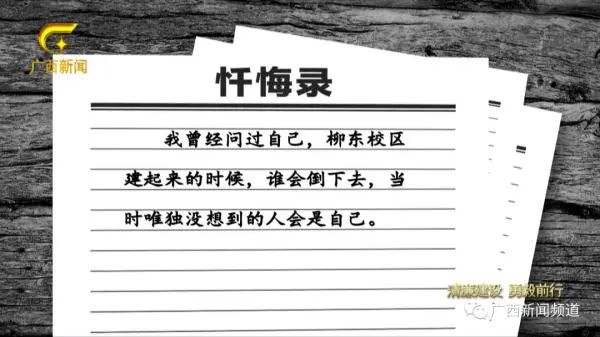 广西新闻
忏悔录
我曾经问过自己，柳东校区
建起来的时候，谁会倒下去，当
时唯独没想到的人会是自己。
清廉建设 勇毅前行
广西新闻频道